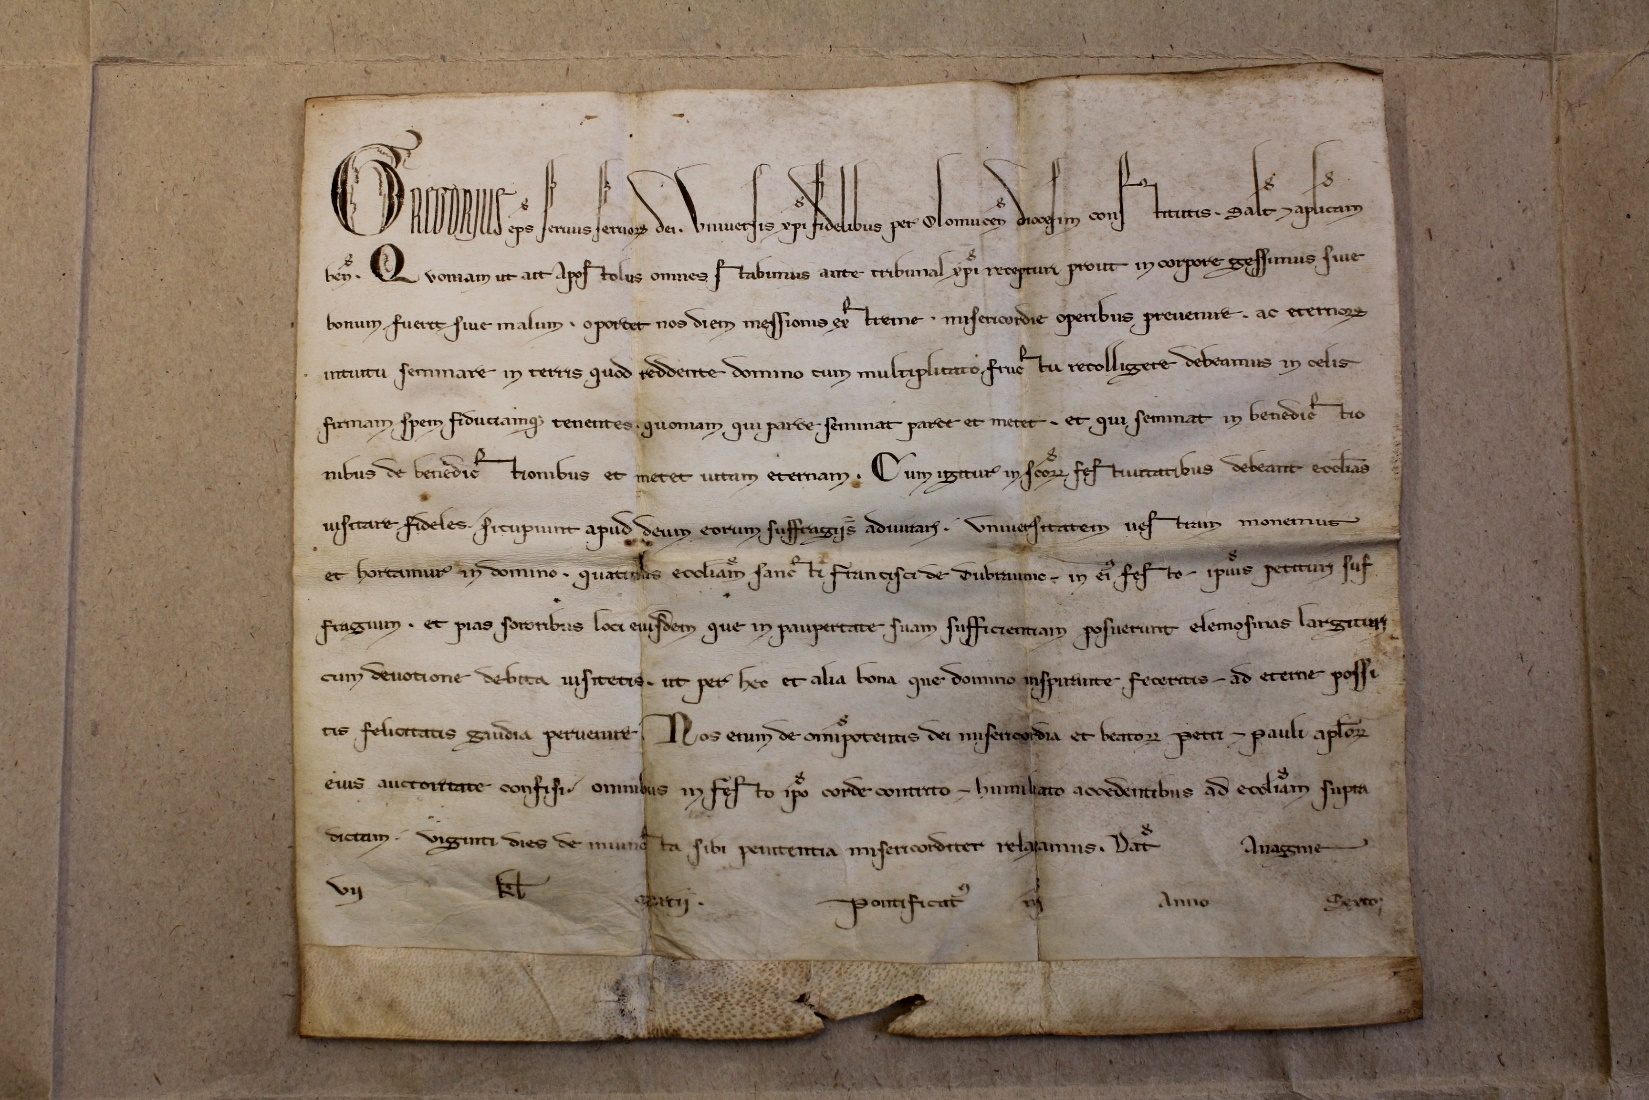 GREGORIUS ep̄s servus servoꝝ dei. Universis xp̄i fidelibus per Olomucen̄ diocesim constitutis. Salt̄ ⁊ aplicam
ben̄. Quoniam ut ait Apostolus omnes stabimus ante tribunal xp̄i recepturi prout in corpore gessimus sive
bonum fuerit sive malum. oportet nos diem messionis extreme. misericordie operibus prevenire. ac eternoꝝ
intuitu seminare in terris quod reddente domino cum multiplicato fructu recolligere debeamus in celis
firmam spem fiduciamqꝫ tenentes. quoniam qui parce seminat parce et metet. et qui seminat in benedictio
nibus de benedictionibus et metet vitam eternam. Cum igitur in sc̄oꝝ festivitatibus debeant ecclias
visitare fideles. si cupiunt apud deum eorum suffragiis adiuvari. Universitatem vestram monemus
et hortamur in domino. quatinus eccliam sancti Francisci de in ei festo ipius petituri suf
fragium. et pias sororibus loci eiusdem que in paupertate suam sufficientiam posuerunt elemosinas largituri
cum devotione debita visitetis. ut per hec et alia bona que domino inspirante feceritis ad eterne possi
tis felicitatis gaudia pervenire. Nos enim de omīpotentis dei misericordia et beatoꝝ Petri ⁊ Pauli aploꝝ
eius auctoritate confisi. omnibus in festo ipo corde contrito ⁊ humiliato accedentibus ad eccliam supra
dictam. viginti dies de iniuncta sibi penitentia misericorditer relaxamus. Dat̄ Anagnie
vii kl̄ martii. Pontificat nr̄i Anno Sexto